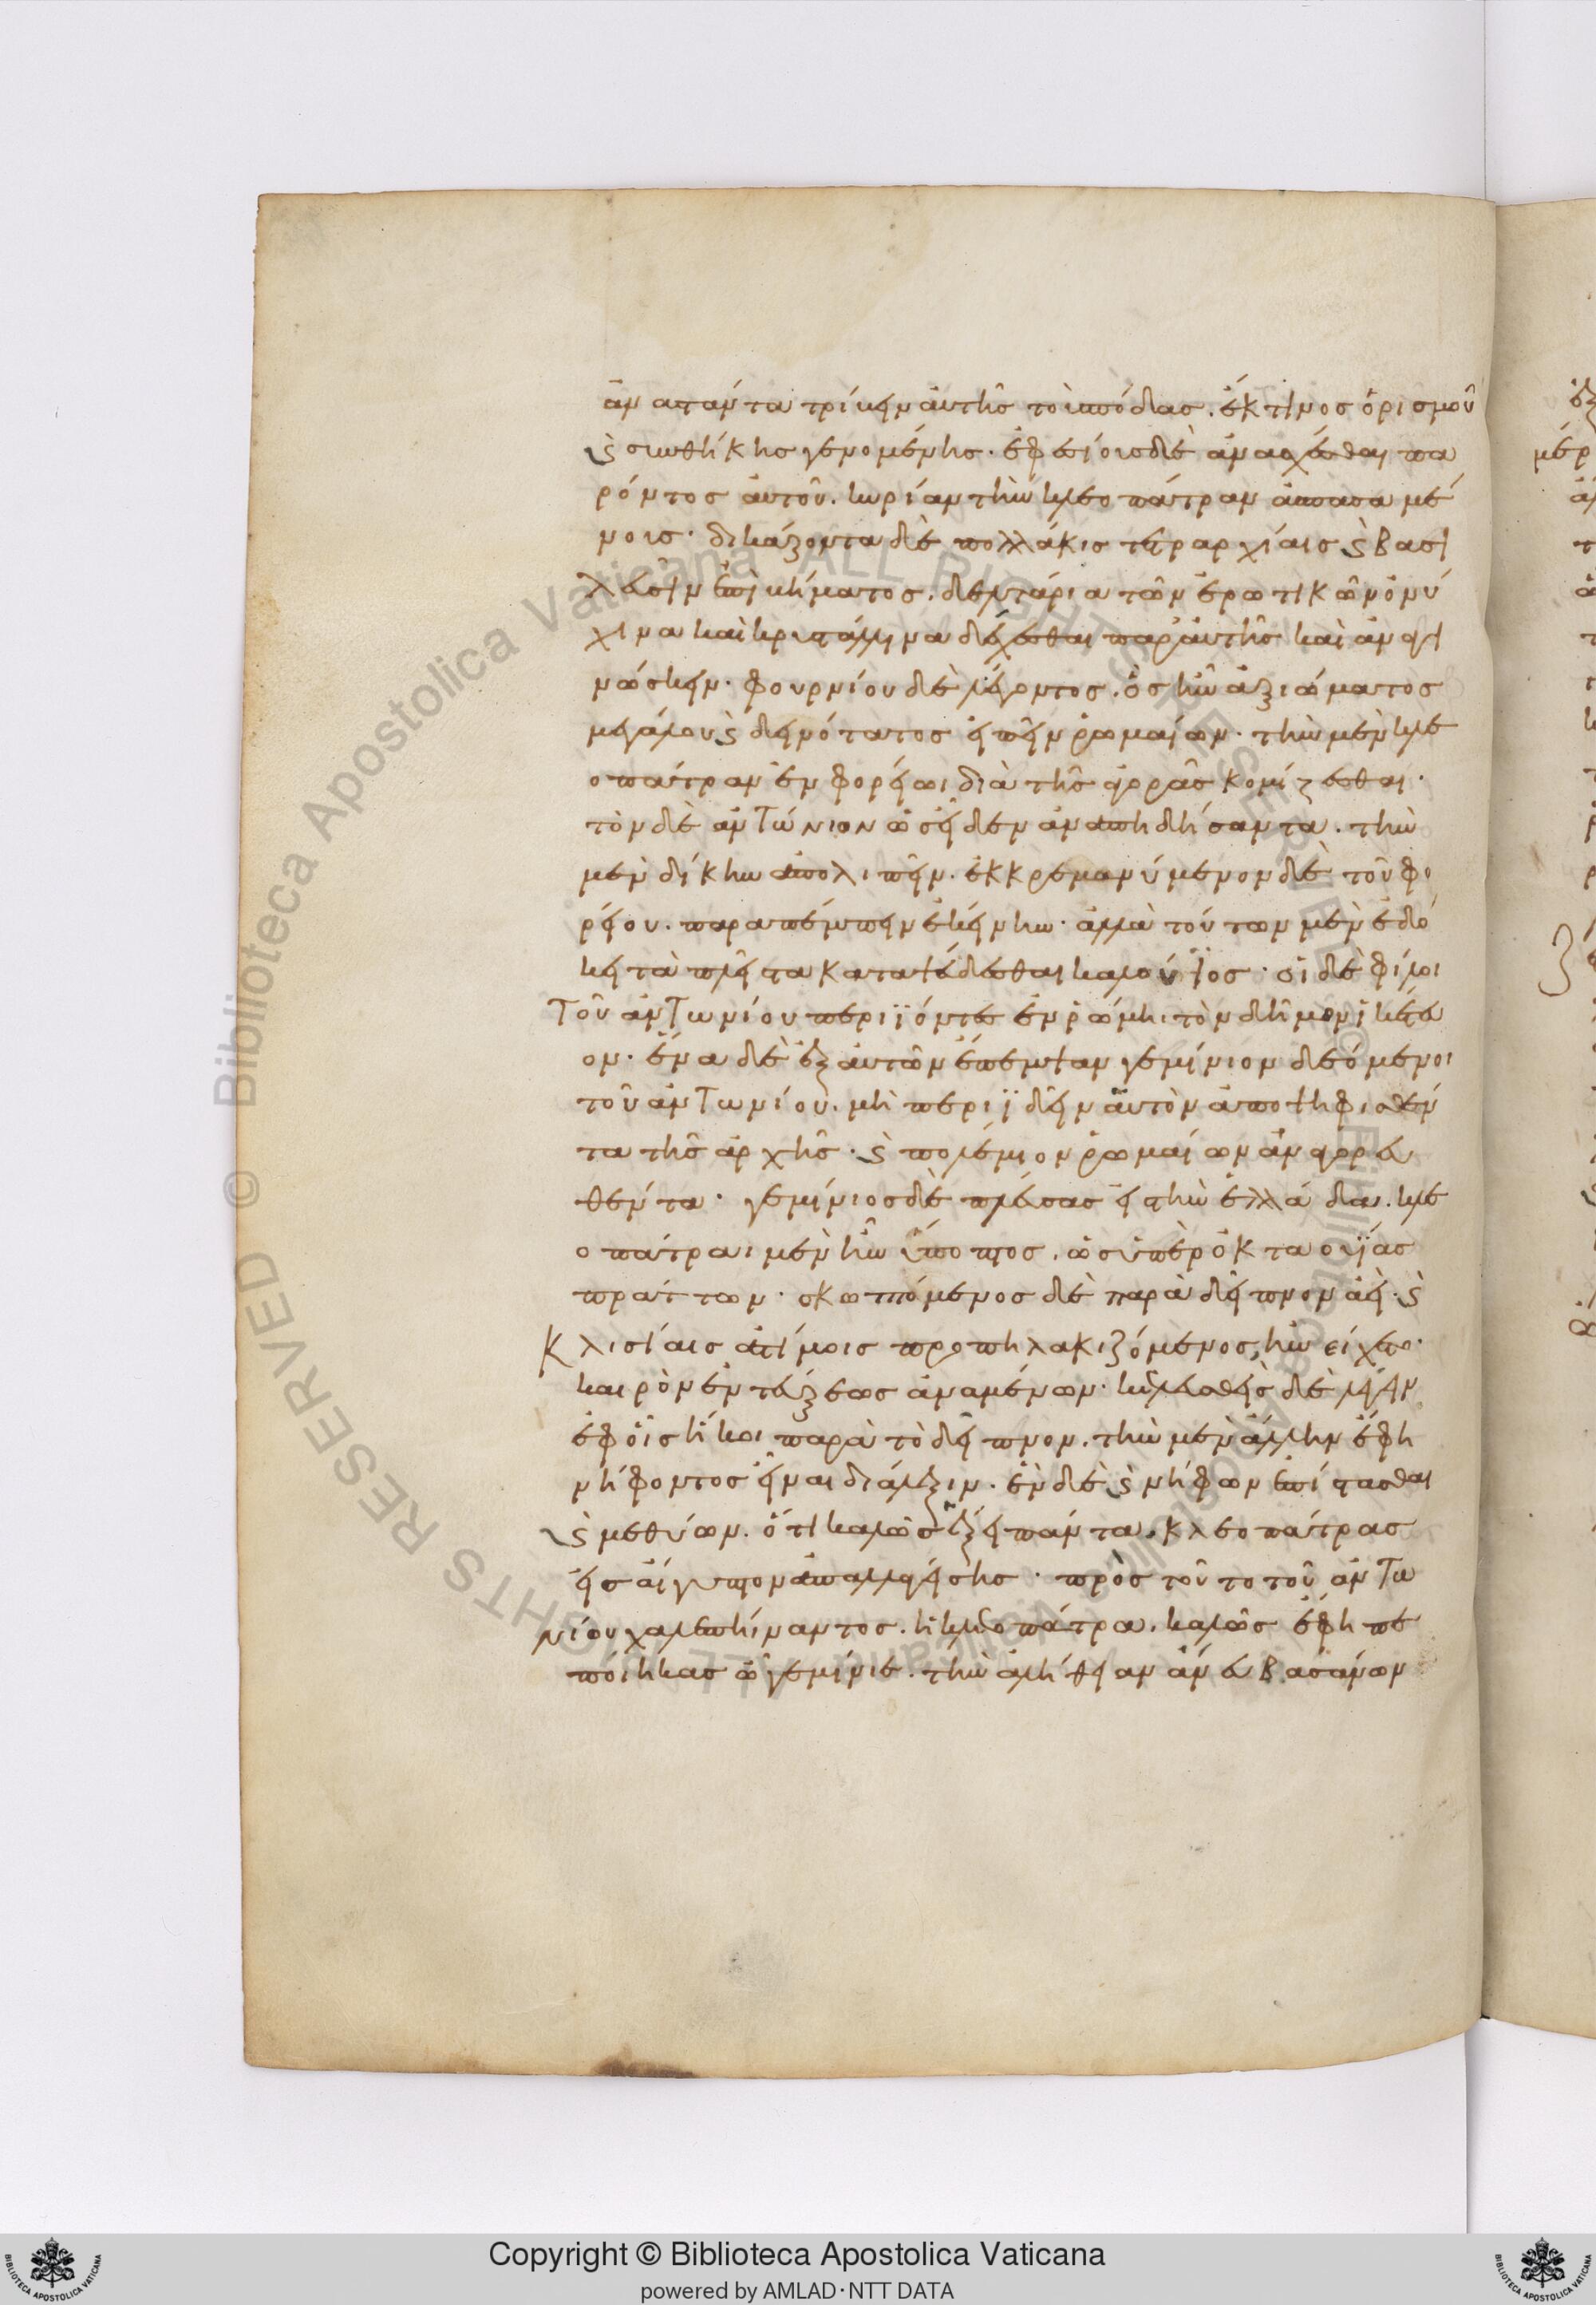 ἀναστάντα τρίβειν αὐτῆς τοὺς πόδας. ἔκ τινος ὁρισμοῦ
ϗ συνθήκης γενομένης. ἐφεσίους δὲ ἀνασχέσθαι πα
ρόντος αὐτοῦ. κυρίαν τὴν κλεοπάτραν ἀσπασαμέ
νους. δικάζοντα δὲ πολλάκις τετράρχαις ϗ βασι
λεῦσιν ἐπὶ βήματος. δελτάρια τῶν ἐρωτικῶν ὀνύ
χινα καὶ κρυστάλλινα δέχεσθαι παρ' αὐτῆς καὶ ἀναγι
νώσκειν. φουρνίου δὲ λέγοντος. ὃς ἦν ἀξιώματος
μεγάλου ϗ δεινότατος εἰπεῖν ῥωμαίων. τὴν μὲν κλε
οπάτραν ἐν φορείωι διὰ τῆς ἀγορᾶς κομίζεσθαι.
τὸν δὲ ἀντώνιον ὡς εἶδεν ἀναπηδήσαντα. τὴν
μὲν δίκην ἀπολιπεῖν. ἐκκρεμαννύμενον δὲ τοῦ φο
ρείου. παραπέμπειν ἐκείνην. ἀλλὰ τούτων μὲν ἐδό
κει τὰ πλεῖστα καταψεύδεσθαι καλουίσιος. οἱ δὲ φίλοι
τοῦ ἀντωνίου περιϊόντες ἐν ῥώμηι τὸν δῆμον ἱκέτευ
ον. ἕνα δὲ ἐξ αὐτῶν ἔπεμψαν γεμίνιον δεόμενοι
τοῦ ἀντωνίου. μὴ περιϊδεῖν αὑτὸν ἀποψηφισθέν
τα τῆς ἀρχῆς. ϗ πολέμιον ῥωμαίων ἀναγορευ
θέντα. γεμίνιος δὲ πλεύσας εἰς τὴν ἑλλάδα. κλε
οπάτραι μὲν ἦν ὕποπτος. ὡς ὑπὲρ ὀκταουΐας
πράττων. σκωπτόμενος δὲ παρὰ δεῖπνον ἀεὶ. ϗ
κλισίαις ἀτίμοις προπηλακιζόμενος, ἠνείχετο.
καιρὸν ἐντεύξεως ἀναμένων. κελευσθεὶς δὲ λέγειν
ἐφ' οἷς ἥκοι παρὰ τὸ δεῖπνον. τὴν μὲν ἄλλην ἔφη
νήφοντος εἶναι διάλεξιν. ἓν δὲ ϗ νήφων ἐπίστασθαι
ϗ μεθύων. ὅτι καλῶς ἕξει πάντα. κλεοπάτρας
εἰς αἴγυπτον ἀπαλλαγείσης. πρὸς τοῦτο τοῦ ἀντω
νίου χαλεπήναντος. ἡ κλεοπάτρα. καλῶς ἔφη πε
ποίηκας ὦ γεμίνιε. τὴν ἀλήθειαν ἄνευ βασάνων